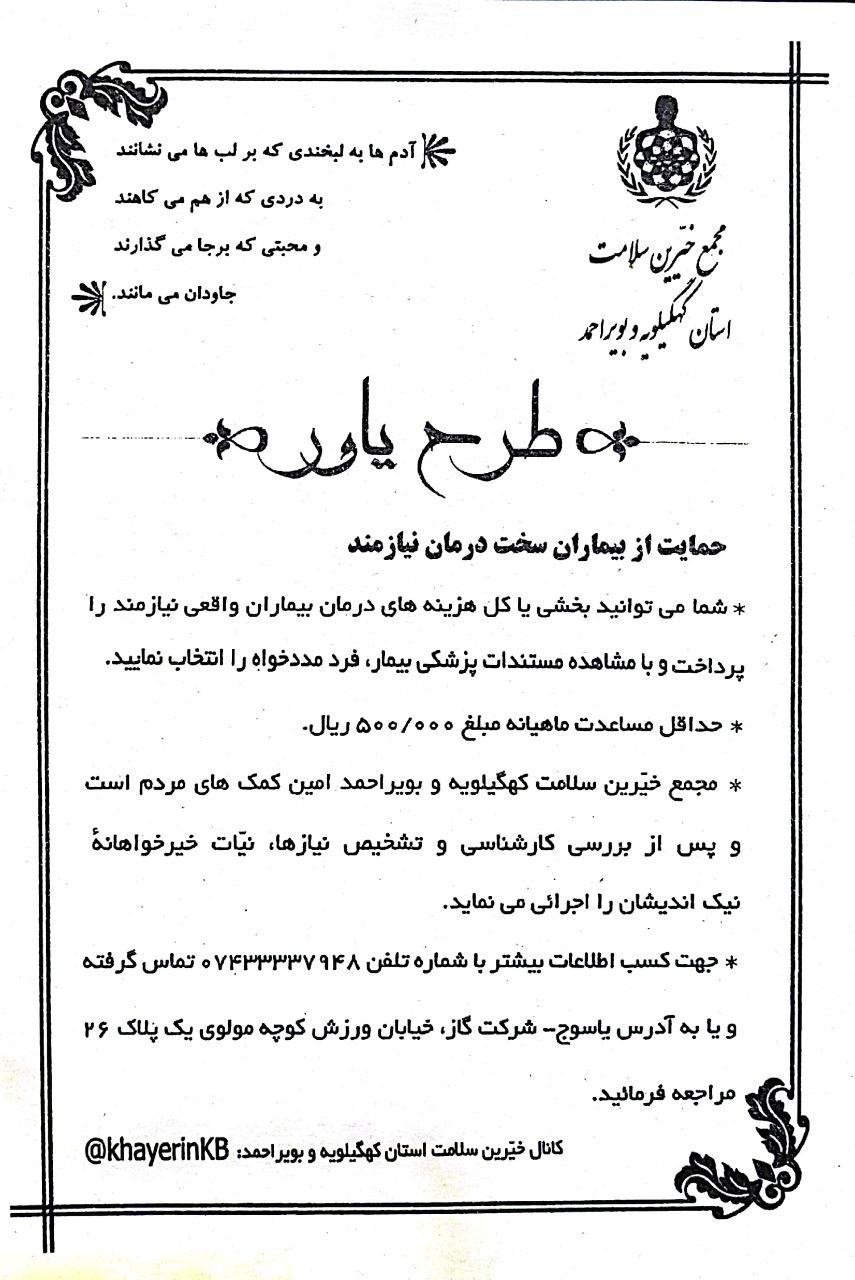 مجمع خیّرین سلامت
استان کهگیلویه و بویراحمد
آدم ها به لبخندی که بر لب ها می نشانند
به دردی که از هم می کاهند
و محبتی که برجا می گذارند
جاودان می مانند.
طرح یاور
حمایت از بیماران سخت درمان نیازمند
* شما می توانید بخشی یا کل هزینه های درمان بیماران واقعی نیازمند را
پرداخت و با مشاهده مستندات پزشکی بیمار، فرد مددخواه را انتخاب نمایید.
* حداقل مساعدت ماهیانه مبلغ ۵۰۰/۰۰۰ ریال.
* مجمع خیّرین سلامت کهگیلویه و بویراحمد امین کمک های مردم است
و پس از بررسی کارشناسی و تشخیص نیازها، نیّات خیرخواهانهٔ
نیک اندیشان را اجرائی می نماید.
* جهت کسب اطلاعات بیشتر با شماره تلفن ۰۷۴۳۳۳۳۷۹۴۸ تماس گرفته
و یا به آدرس یاسوج- شرکت گاز، خیابان ورزش کوچه مولوی یک پلاک ۲۶
مراجعه فرمائید.
کانال خیّرین سلامت استان کهگیلویه و بویراحمد: @khayerinKB